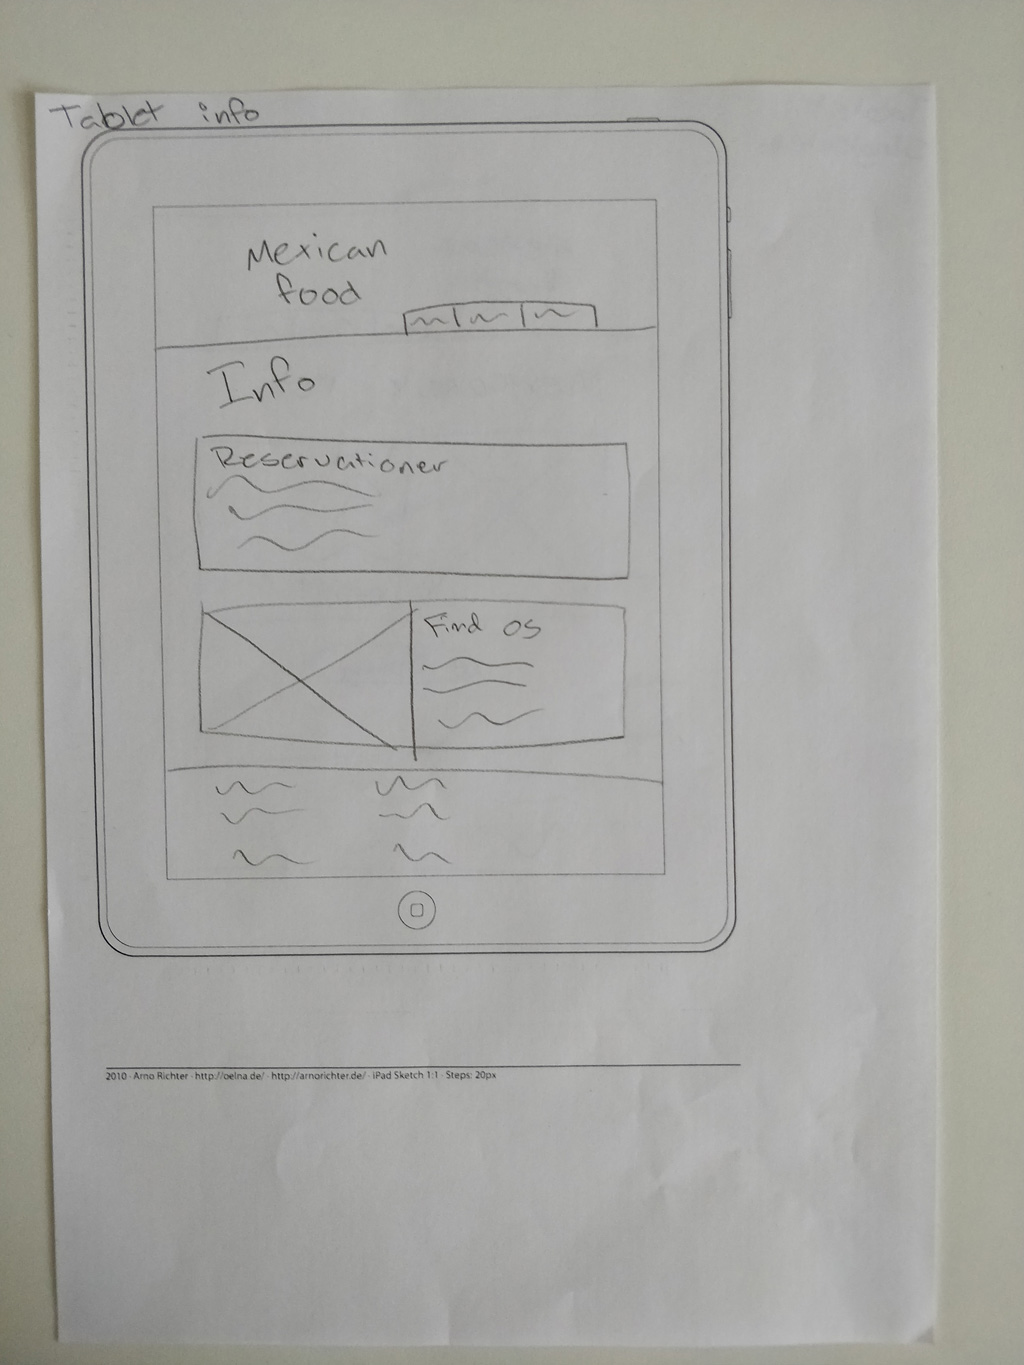 Tablet info
Mexican
food
Info
Reservationer
Find os
2010 · Arno Richter · http://oelna.de/ · http://arnorichter.de/ · iPad Sketch 1:1 · Steps: 20px